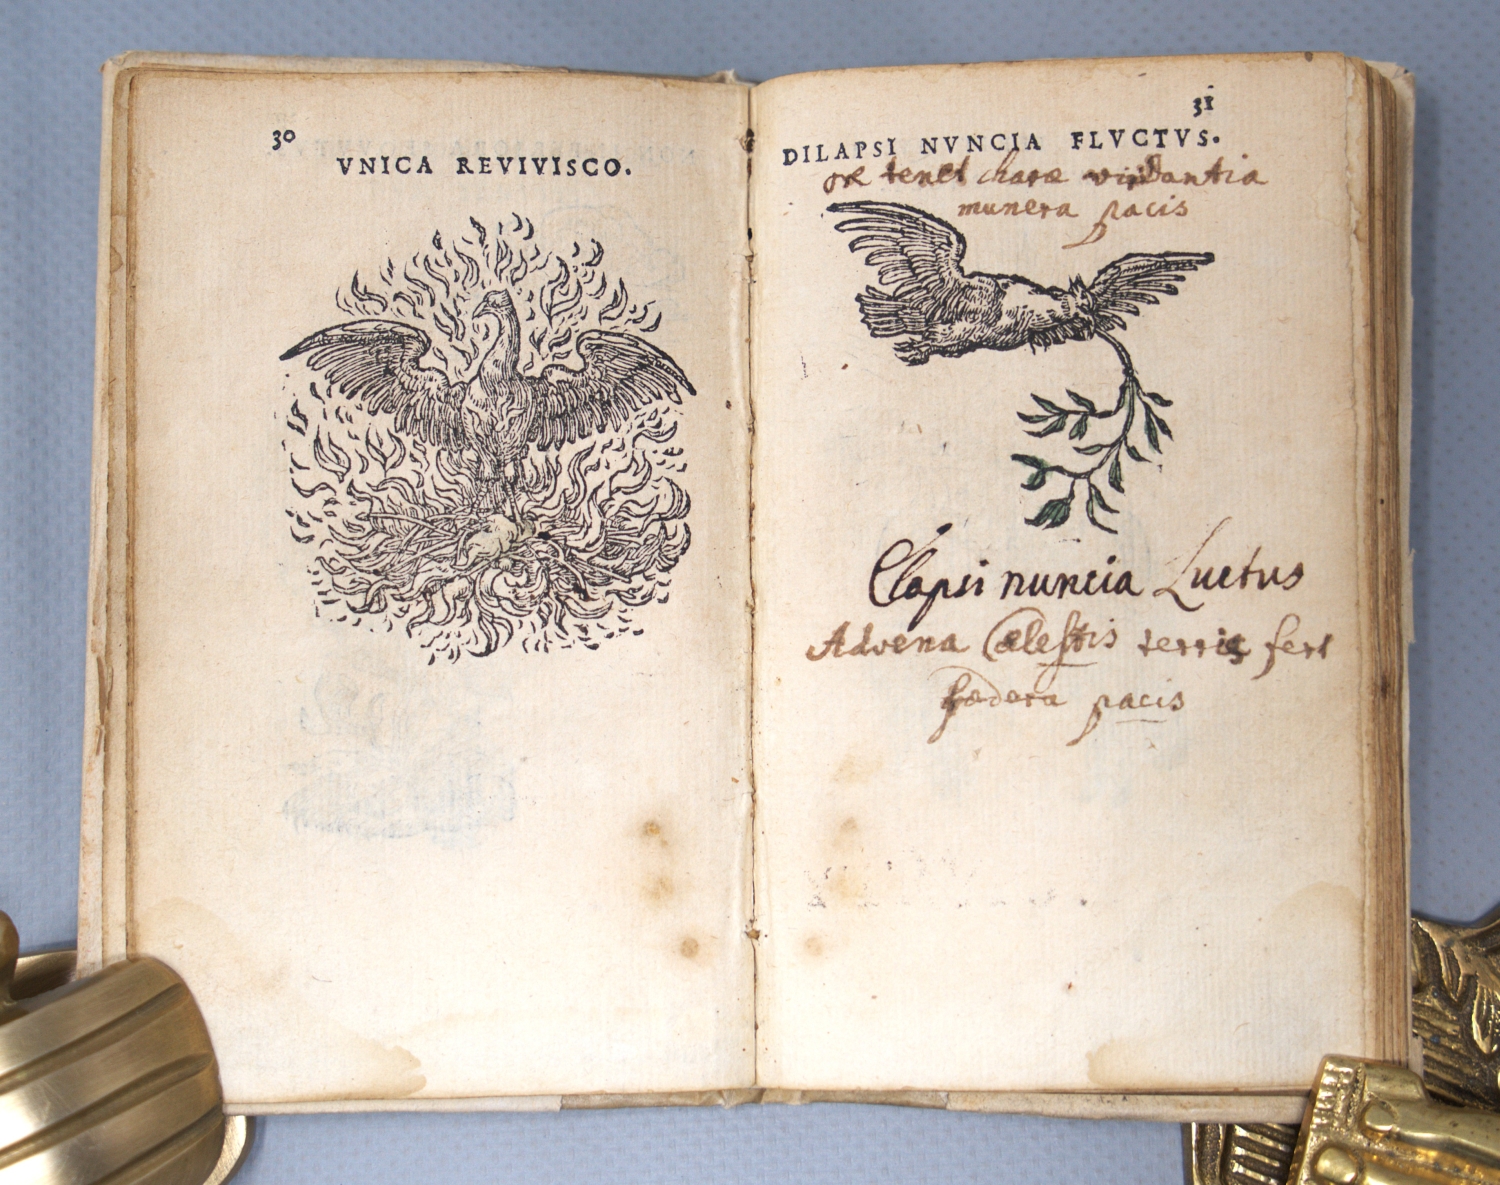 30
VNICA REVIVISCO.
31
DILAPSI NVNCIA FLVCTVS.
ore tenet charæ viridantia
munera pacis
Elapsi nuncia Luctus
Advena Cœlestis terris fert
fœdera pacis